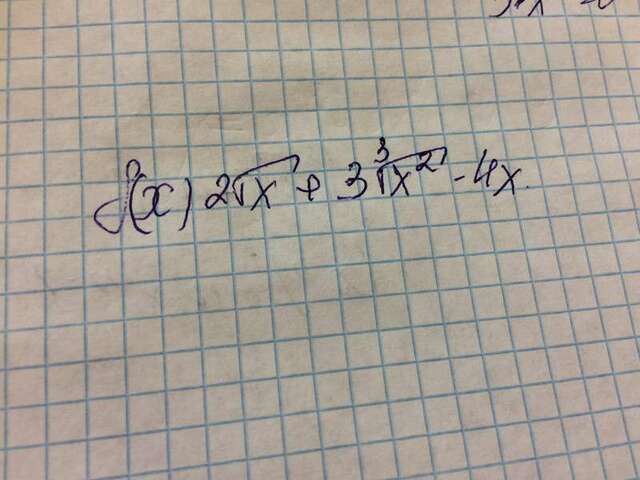 f(x) 2√x + 3∛x² - 4x